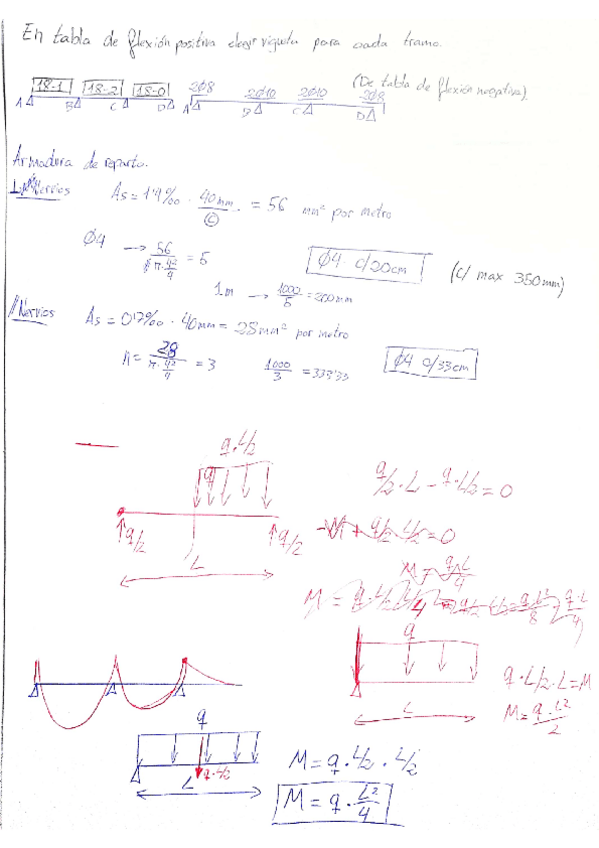 En tabla de flexión positiva elegir vigueta para cada tramo.
18-1 18-2 18-0 2Ø8 2Ø10 2Ø10 2Ø8 (De tabla de flexión negativa)
A B C D A B C D
Armadura de reparto.
Nervios As = 1'4‰ · 40mm = 56 mm² por metro
©
Ø4 → 56 / π·4²/4 = 5
Ø4 c/20cm (c/ max 350mm)
1m → 1000/5 = 200mm
// Nervios As = 0'7‰ · 40mm = 28mm² por metro
n = 28 / π·4²/4 = 3 1000/3 = 333'33 Ø4 c/33cm
q·L/2
q
q/2·L - q·L/2 = 0
q/2 q/2
L
q
q·L/2·L = M
L
M = q·L²/2
q
q·L/2
L
M = q·L/2·L/2
M = q·L²/4